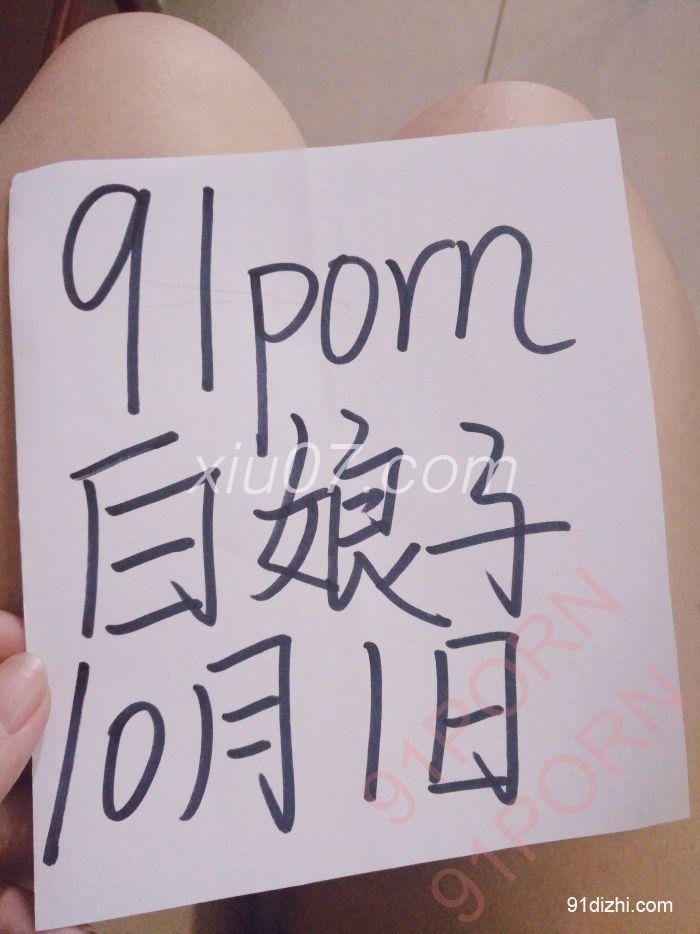 91porn
白娘子
10月1日
xiu07.com
91PORN
91PORN
91dizhi.com